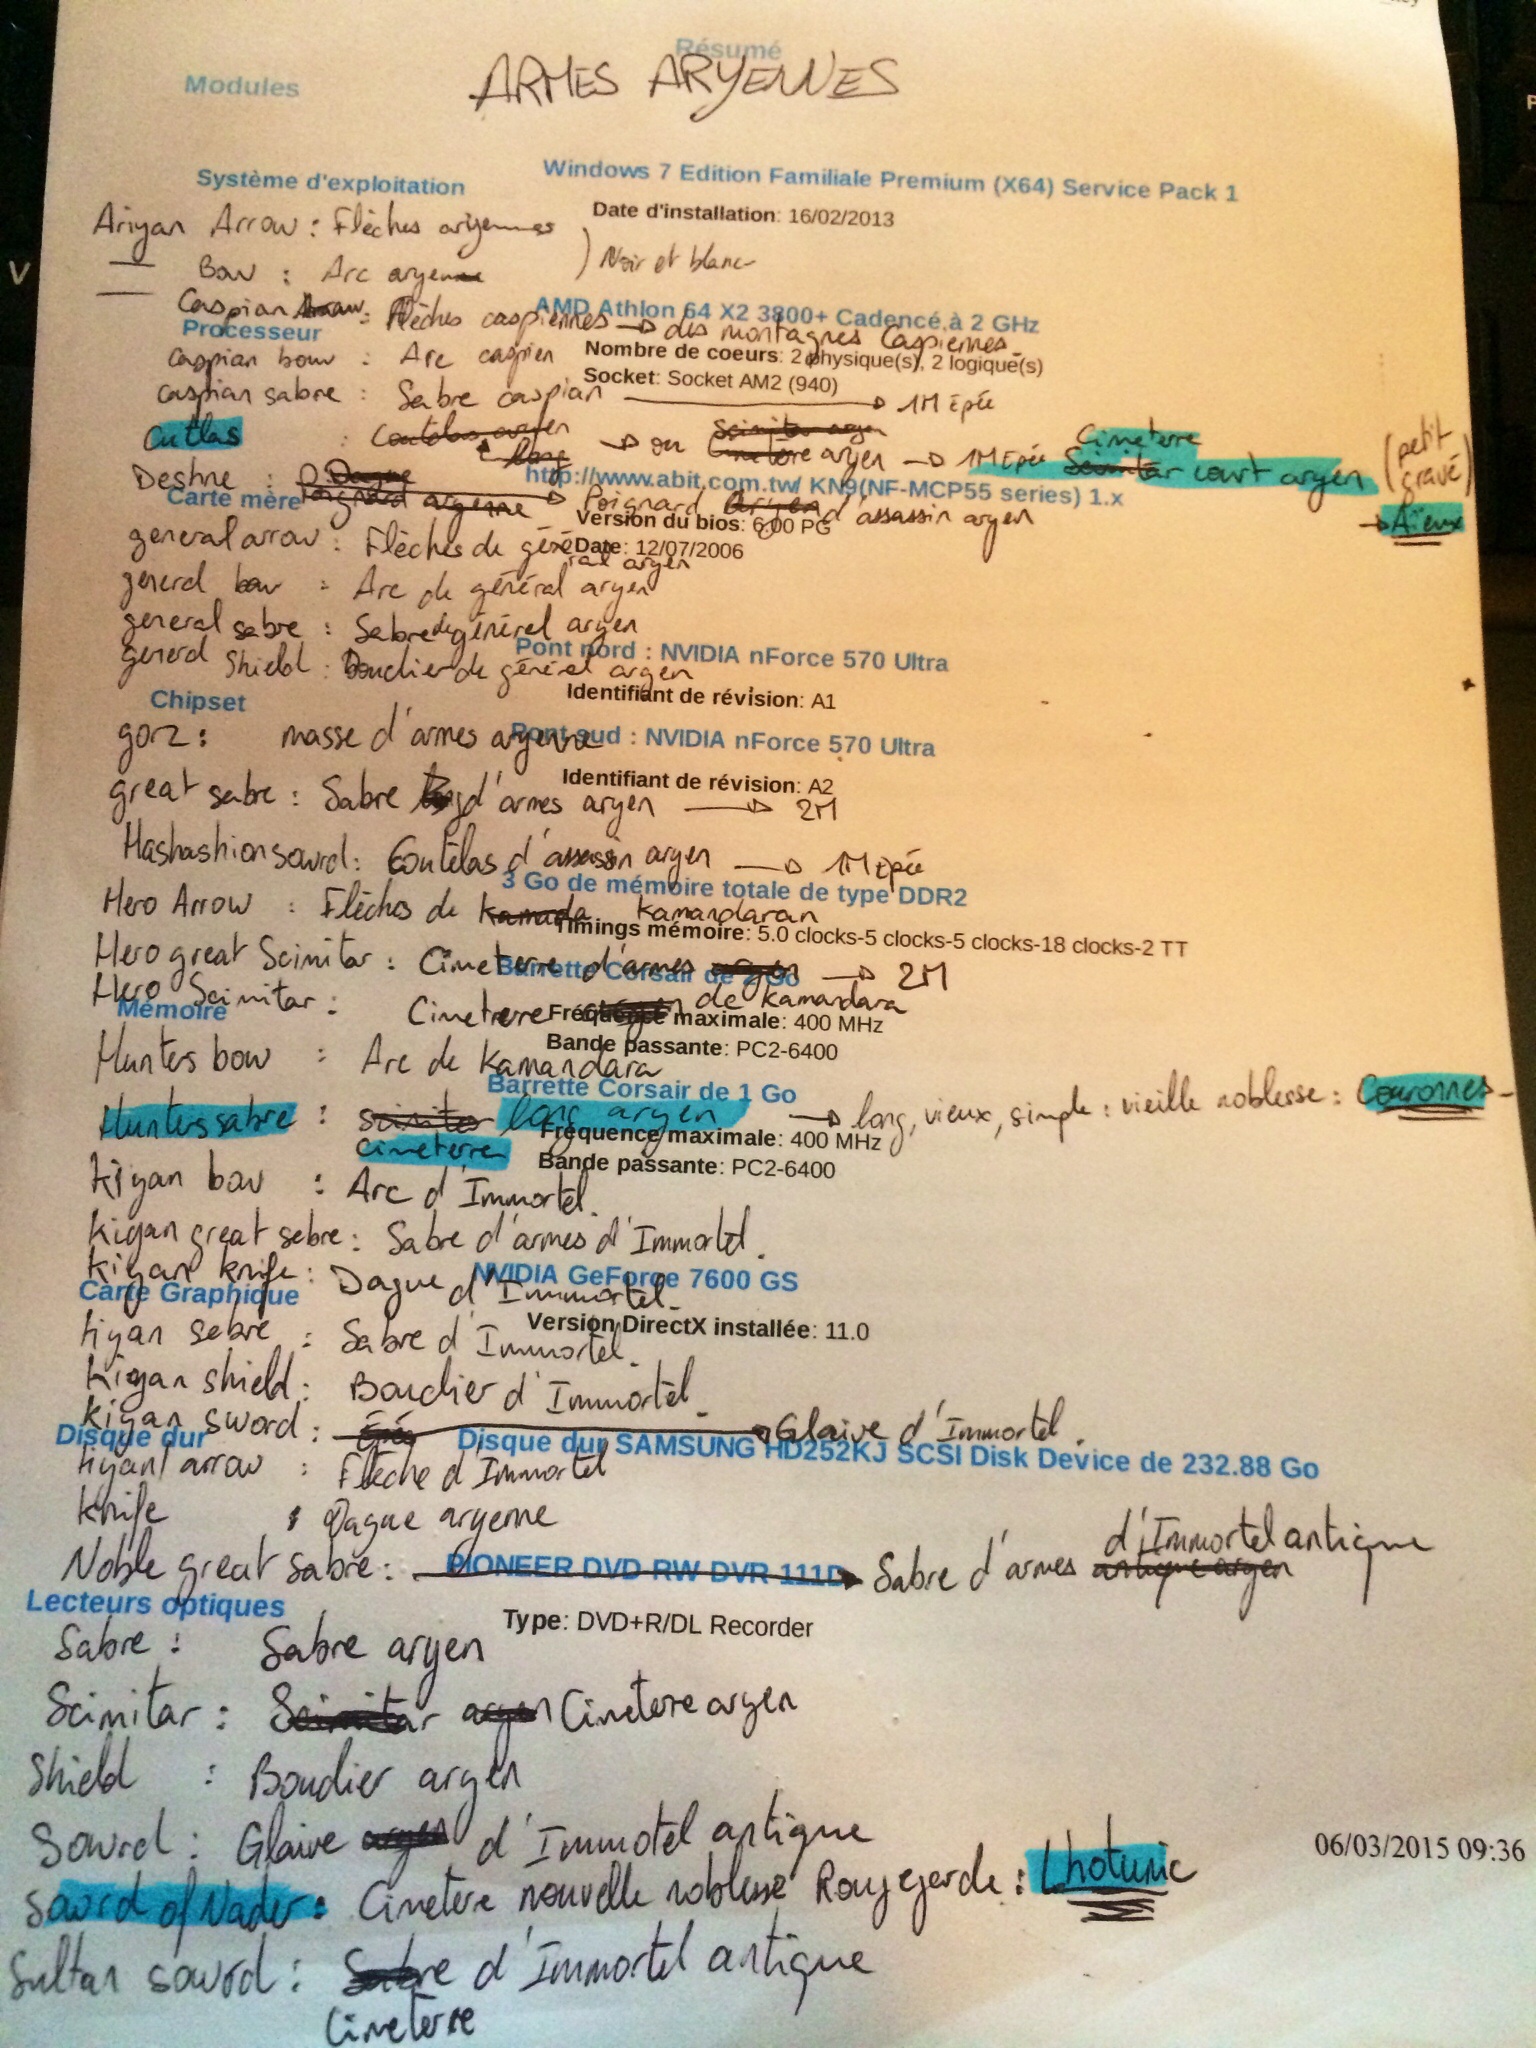 Résumé
Modules
ARMES ARYENNES
Système d'exploitation
Windows 7 Edition Familiale Premium (X64) Service Pack 1
Date d'installation: 16/02/2013
Ariyan Arrow : Flèches aryennes
— Bow : Arc aryenne ) Noir et blanc
— Caspian Arrow : Flèches caspiennes → des montagnes Caspiennes
AMD Athlon 64 X2 3800+ Cadencé à 2 GHz
Processeur
Nombre de coeurs: 2 physique(s), 2 logique(s)
caspian bow : Arc caspien
Socket: Socket AM2 (940)
caspian sabre : Sabre caspian → 1M Epée
Cutlas : Coutelas aryen long → ou Scimitar aryen Cimeterre aryen → 1M Epée Scimitar Cimeterre court aryen (petit gravé) → Aïeux
http://www.abit.com.tw/ KN9(NF-MCP55 series) 1.x
Deshne : Dague Poignard aryenne → Poignard aryen d'assassin aryen
Carte mère
Version du bios: 6.00 PG
general arrow : Flèches de général aryen
Date: 12/07/2006
general bow : Arc de général aryen
general sabre : Sabre de général aryen
Pont nord : NVIDIA nForce 570 Ultra
general Shield : Bouclier de général aryen
Identifiant de révision: A1
Chipset
gorz : masse d'armes aryenne
Pont sud : NVIDIA nForce 570 Ultra
Identifiant de révision: A2
great sabre : Sabre long d'armes aryen → 2M
Hashashion sowrd : Coutelas d'assassin aryen → 1M Epée
3 Go de mémoire totale de type DDR2
Hero Arrow : Flèches de kamada kamandaran
Timings mémoire: 5.0 clocks-5 clocks-5 clocks-18 clocks-2 TT
Hero great Scimitar : Cimeterre d'armes aryen → 2M
Barrette Corsair de 2 Go
Hero Scimitar : Cimeterre aryen de kamandara
Mémoire
Fréquence maximale: 400 MHz
Bande passante: PC2-6400
Hunters bow : Arc de kamandara
Barrette Corsair de 1 Go
Hunters sabre : scimiter cimeterre long aryen → long, vieux, simple : vieille noblesse : Couronnes
Fréquence maximale: 400 MHz
Bande passante: PC2-6400
kiyan bow : Arc d'Immortel.
kiyan great sebre : Sabre d'armes d'Immortel.
kiyan knife : Dague d'Immortel.
NVIDIA GeForce 7600 GS
Carte Graphique
Version DirectX installée: 11.0
kiyan sebre : Sabre d'Immortel.
kiyan shield : Bouclier d'Immortel.
kiyan sword : Épée → Glaive d'Immortel.
Disque dur
Disque dur SAMSUNG HD252KJ SCSI Disk Device de 232.88 Go
kiyan arrow : Flèche d'Immortel
knife : Dague aryenne
Noble great sabre : → Sabre d'armes antique aryen d'Immortel antique
PIONEER DVD-RW DVR-111D
Lecteurs optiques
Type: DVD+R/DL Recorder
Sabre : Sabre aryen
Scimitar : Scimitar aryen Cimeterre aryen
Shield : Bouclier aryen
Sowrd : Glaive aryen d'Immotel antique
06/03/2015 09:36
Sowrd of Nader : Cimetere nouvelle noblesse Rougegarde : Lhotunic
Sultan sowrd : Sabre d'Immortel antique
Cimeterre